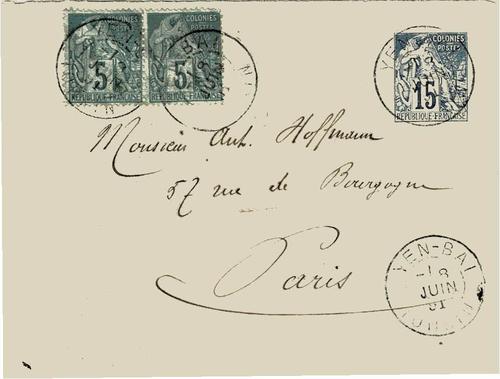 COLONIES
POSTES
5
REPUBLIQUE FRANÇAISE
COLONIES
POSTES
5
REPUBLIQUE FRANÇAISE
COLONIES
POSTES
15
REPUBLIQUE FRANÇAISE
Monsieur Ant. Hoffmann
57 rue de Bourgogne
Paris
YEN-BAI
JUIN
91
TONKIN